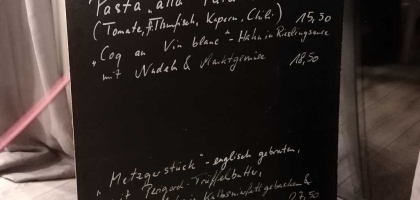 Pasta „alla
(Tomate, Thunfisch, Kapern, Chili) 15,50
„Coq au Vin blanc" - Hahn in Rieslingsauce
mit Nudeln & Marktgemüse 18,50
„Metzgerstück" - englisch gebraten,
mit Perigord-Trüffelbutter,
in Kalbsnierfett gebacken &
27,50